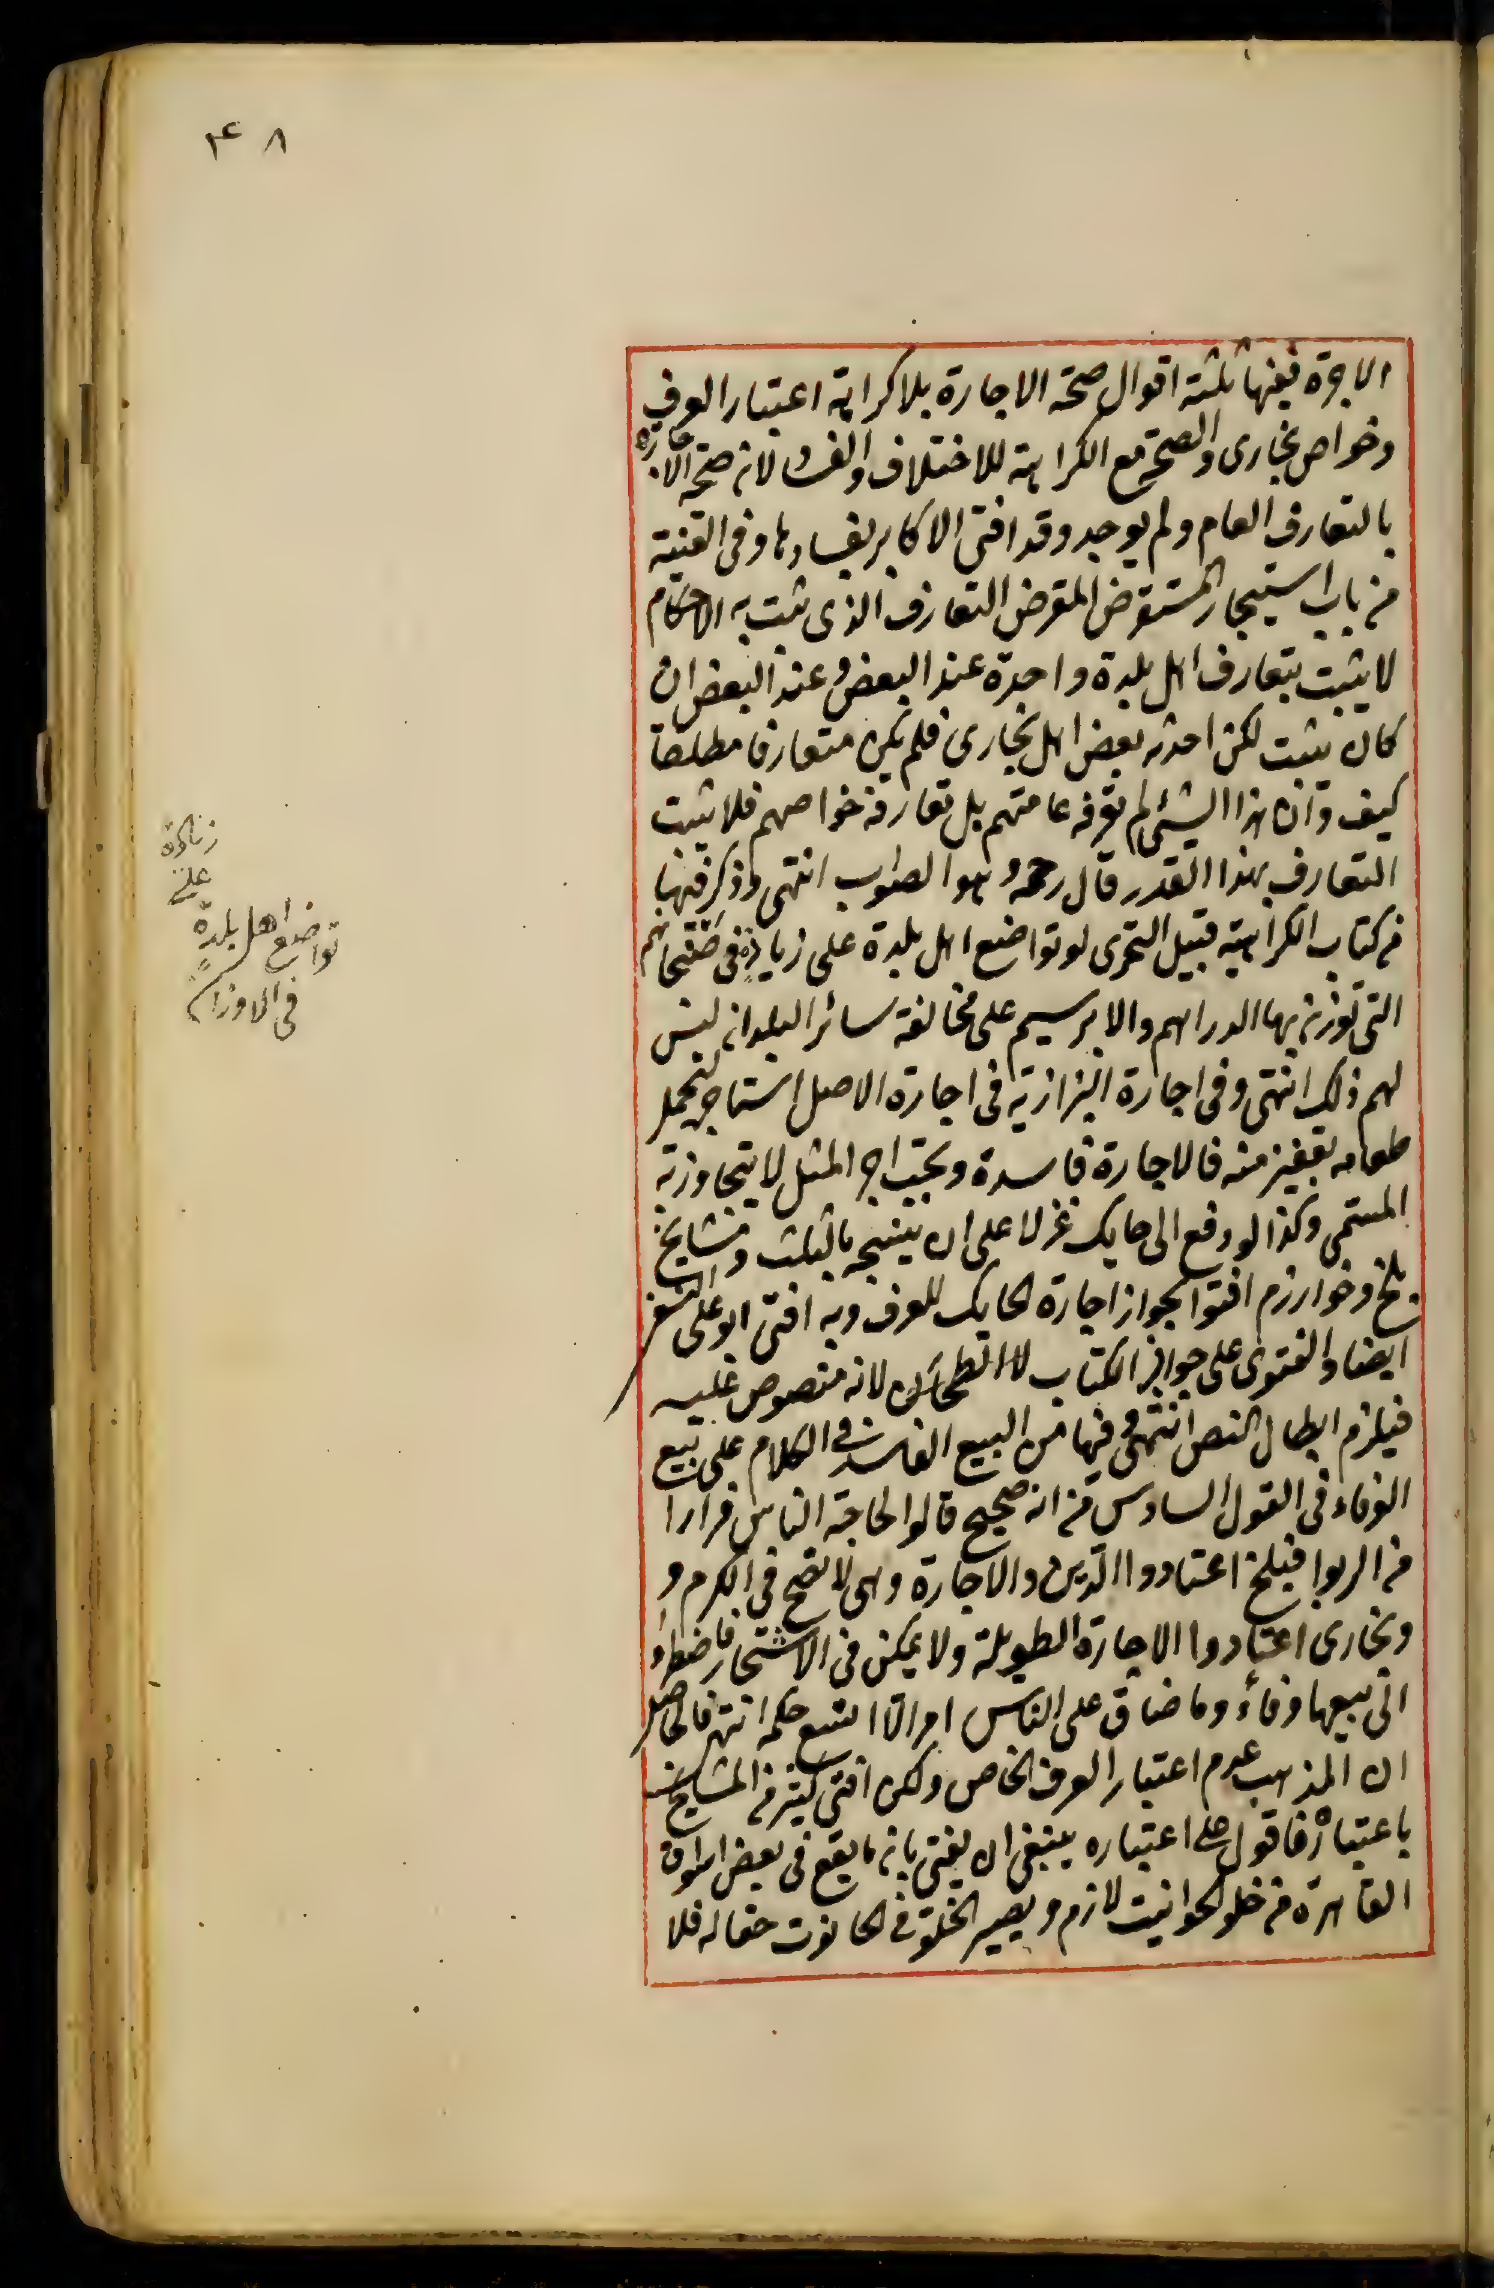 ٤٨
الاجرة ففيها ثلثة اقوال صحة الاجارة بلا كراهة اعتبار العرف
وخواص بخارى والصحة مع الكراهة للاختلاف والفساد لان صحة الاجارة
بالتعارف العام ولم يوجد وقد افتى الاكابر بفسادها وفى القنية
من باب استيجار المستقرض المقرض التعارف الذى تثبت به الاحكام
لا يثبت بتعارف اهل بلدة واحدة عند البعض وعند البعض ان
كان يثبت لكن احدثه بعض اهل بخارى فلم يكن متعارفا مطلقا
كيف وان هذا الشيئ لم يعرفه عامتهم بل تعارفه خواصهم فلا يثبت
التعارف بهذا القدر قال رحمه وهو الصواب انتهى وذكر فيها
من كتاب الكراهية قبيل التحرى لو تواضع اهل بلدة على زيادة فى صنجاتهم
التى توزن بها الدراهم والابريسم على مخالفة سائر البلدان ليس
لهم ذلك انتهى وفى اجارة البزازية فى اجارة الاصل استاجر ليحمل
طعامه بقفيز منه فالاجارة فاسدة ويجب اجر المثل لا يتجاوز به
المسمى وكذا لو دفع الى حايك غزلا على ان ينسجه بالثلث ومشايخ
بلخ وخوارزم افتوا بجواز اجارة الحايك للعرف وبه افتى ابو على النسفى
ايضا والفتوى على جواب الكتاب لا الطحان لانه منصوص عليه
فيلزم ابطال النص انتهى وفيها من البيع الفاسد فى الكلام على بيع
الوفاء فى القول السادس من انه صحيح قالوا لحاجة الناس فرارا
من الربوا فبلخ اعتادوا الدين والاجارة وهى لا تصح فى الكرم و
وبخارى اعتادوا الاجارة الطويلة ولا يمكن فى الاشجار فاضطروا
الى بيعها وفاء وما ضاق على الناس امر الا اتسع حكمه انتهى فالحاصل
ان المذهب عدم اعتبار العرف الخاص ولكن افتى كثير من المشايخ
باعتباره فاقول على اعتباره ينبغى ان يفتى بان ما يقع فى بعض اسواق
القاهرة من خلو الحوانيت لازم ويصير الخلو فى الحانوت حقا له فلا
تواضع اهل بلدة
على
زيادة
فى الاوزان